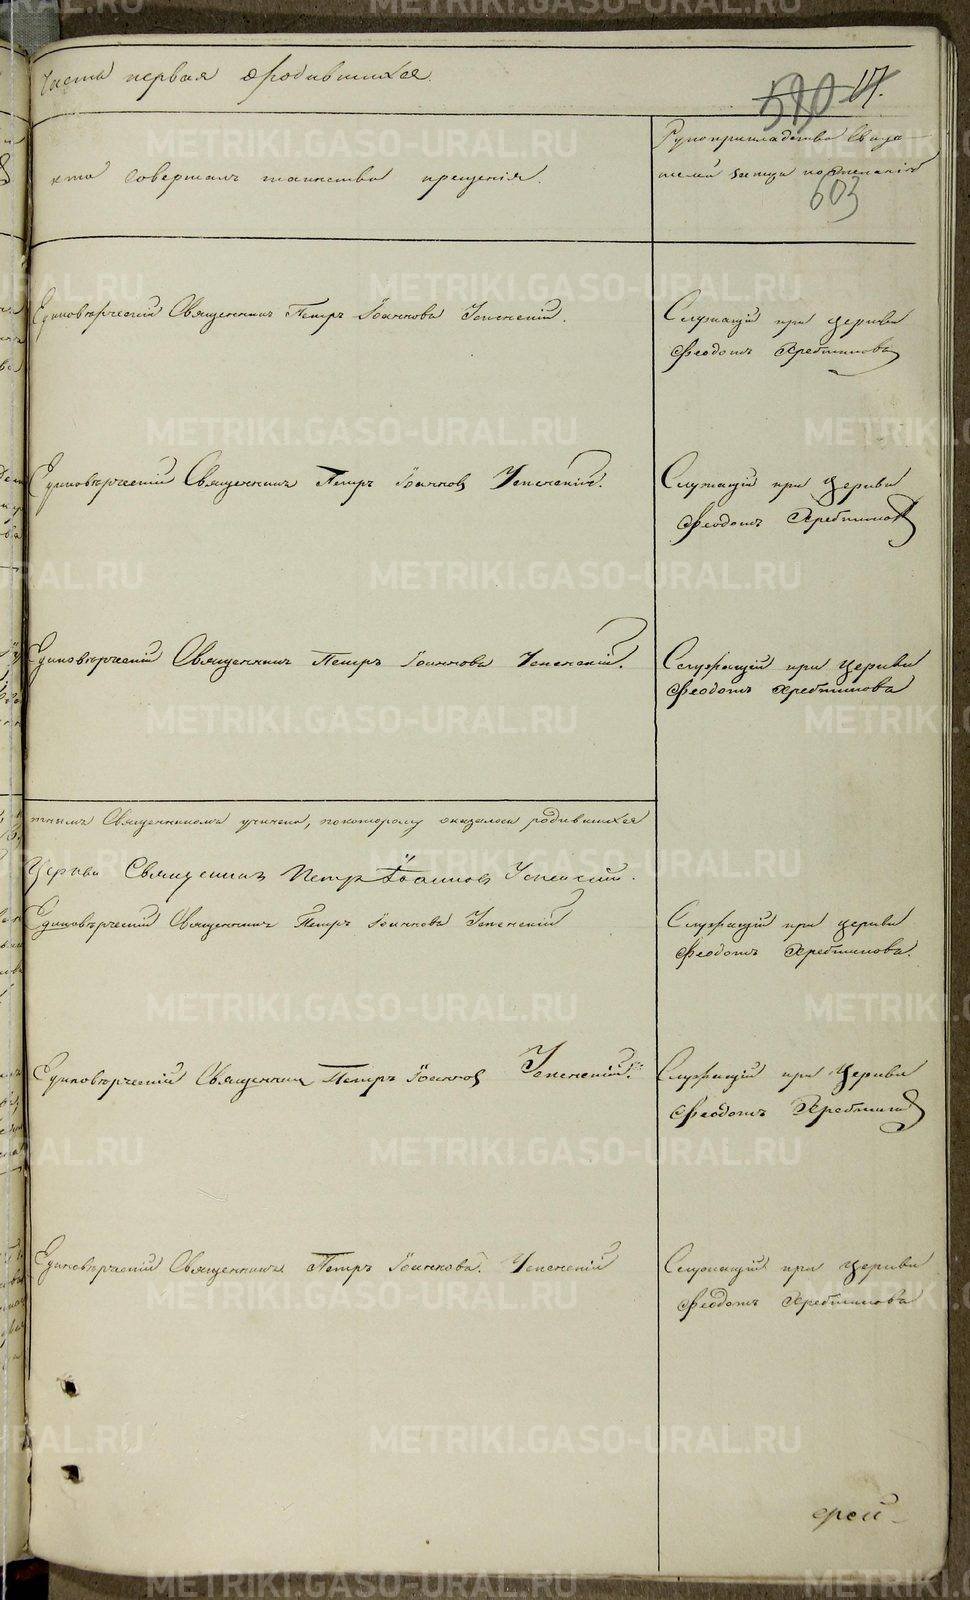 Часть первая о родившихся.
590 17.
кто совершалъ таинство крещенія.
Рукоприкладство свидѣ
телей записи по желанію
603
Единовѣрческій Священникъ Петръ Іоанновъ Успенскій.
Служащій при церкви
Феодотъ Хребтиковъ
Единовѣрческій Священникъ Петръ Іоанновъ Успенскій.
Служащій при Церкви
Феодотъ Хребтиковъ
Единовѣрческій Священникъ Петръ Іоанновъ Успенскій.
Служащій при Церкви
Феодотъ Хребтиковъ
тнымъ Священникомъ учинена, по которому оказалось родившихся
Церкви Священникъ Петръ Іоанновъ Успенскій.
Единовѣрческій Священникъ Петръ Іоанновъ Успенскій
Служащій при церкви
Феодотъ Хребтиковъ.
Единовѣрческій Священникъ Петръ Іоанновъ Успенскій.
Служащій при Церкви
Феодотъ Хребтиковъ
Единовѣрческій Священникъ Петръ Іоанновъ. Успенскій
Служащій при Церкви
Феодотъ Хребтиковъ
ерей
METRIKI.GASO-URAL.RU